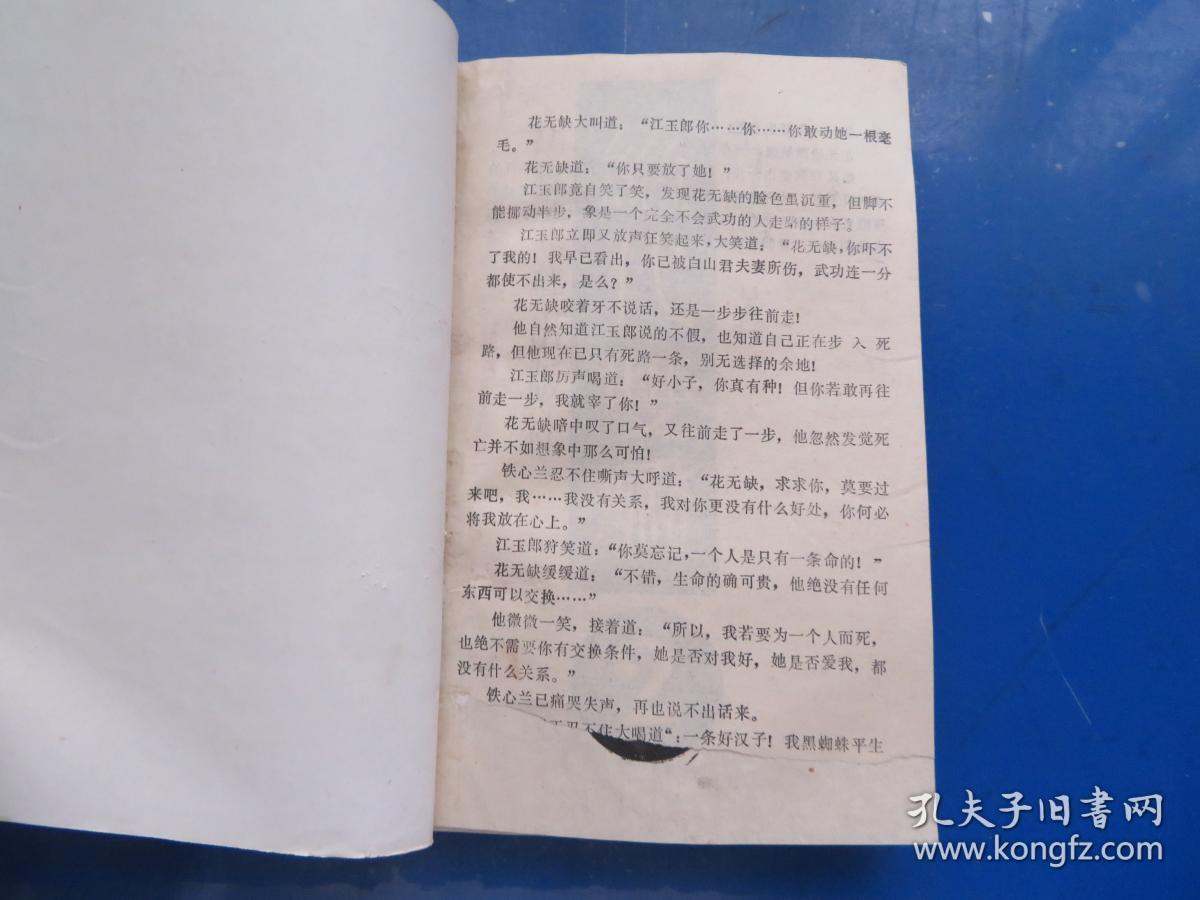 花无缺大叫道：“江玉郎你……你……你敢动她一根毫
毛。”
花无缺道：“你只要放了她！”
江玉郎竟自笑了笑，发现花无缺的脸色虽沉重，但脚不
能挪动半步，象是一个完全不会武功的人走路的样子。
江玉郎立即又放声狂笑起来，大笑道：“花无缺，你吓不
了我的！我早已看出，你已被白山君夫妻所伤，武功连一分
都使不出来，是么？”
花无缺咬着牙不说话，还是一步步往前走！
他自然知道江玉郎说的不假，也知道自己正在步入死
路，但他现在已只有死路一条，别无选择的余地！
江玉郎厉声喝道：“好小子，你真有种！但你若敢再往
前走一步，我就宰了你！”
花无缺暗中叹了口气，又往前走了一步，他忽然发觉死
亡并不如想象中那么可怕！
铁心兰忍不住嘶声大呼道：“花无缺，求求你，莫要过
来吧，我……我没有关系，我对你更没有什么好处，你何必
将我放在心上。”
江玉郎狞笑道：“你莫忘记，一个人是只有一条命的！”
花无缺缓缓道：“不错，生命的确可贵，他绝没有任何
东西可以交换……”
他微微一笑，接着道：“所以，我若要为一个人而死，
也绝不需要你有交换条件，她是否对我好，她是否爱我，都
没有什么关系。”
铁心兰已痛哭失声，再也说不出话来。
忍不住大喝道“：一条好汉子！我黑蜘蛛平生
孔夫子旧书网
www.kongfz.com